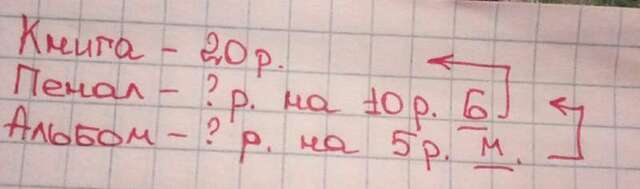 Книга - 20р.
Пенал - ? р. на 10р. Б
Альбом - ? р. на 5р. м.